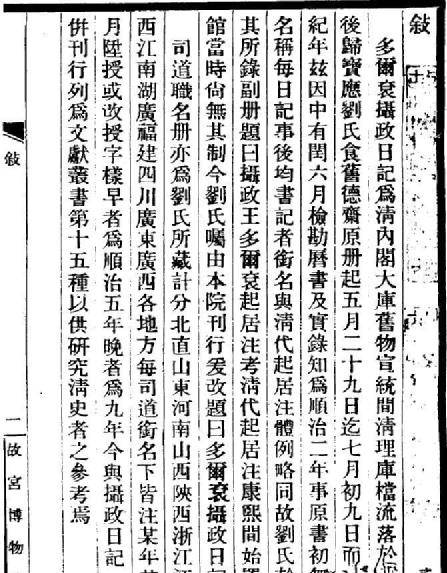 敍
多爾袞攝政日記爲清內閣大庫舊物宣統間清理庫檔流落於
後歸寶應劉氏食舊德齋原册起五月二十九日迄七月初九日而
紀年茲因中有閏六月檢勘曆書及實錄知爲順治二年事原書初無
名稱每日記事後均書記者銜名與清代起居注體例略同故劉氏於
其所錄副册題曰攝政王多爾袞起居注考清代起居注康熙間始
館當時尚無其制今劉氏囑由本院刊行爰改題曰多爾袞攝政日記
司道職名册亦爲劉氏所藏計分北直山東河南山西陝西浙江江
西江南湖廣福建四川廣東廣西各地方每司道銜名下皆注某年某
月陞授或改授字樣早者爲順治五年晚者爲九年今與攝政日記
倂刊行列爲文獻叢書第十五種以供研究清史者之參考焉
敍
一
故宮博物